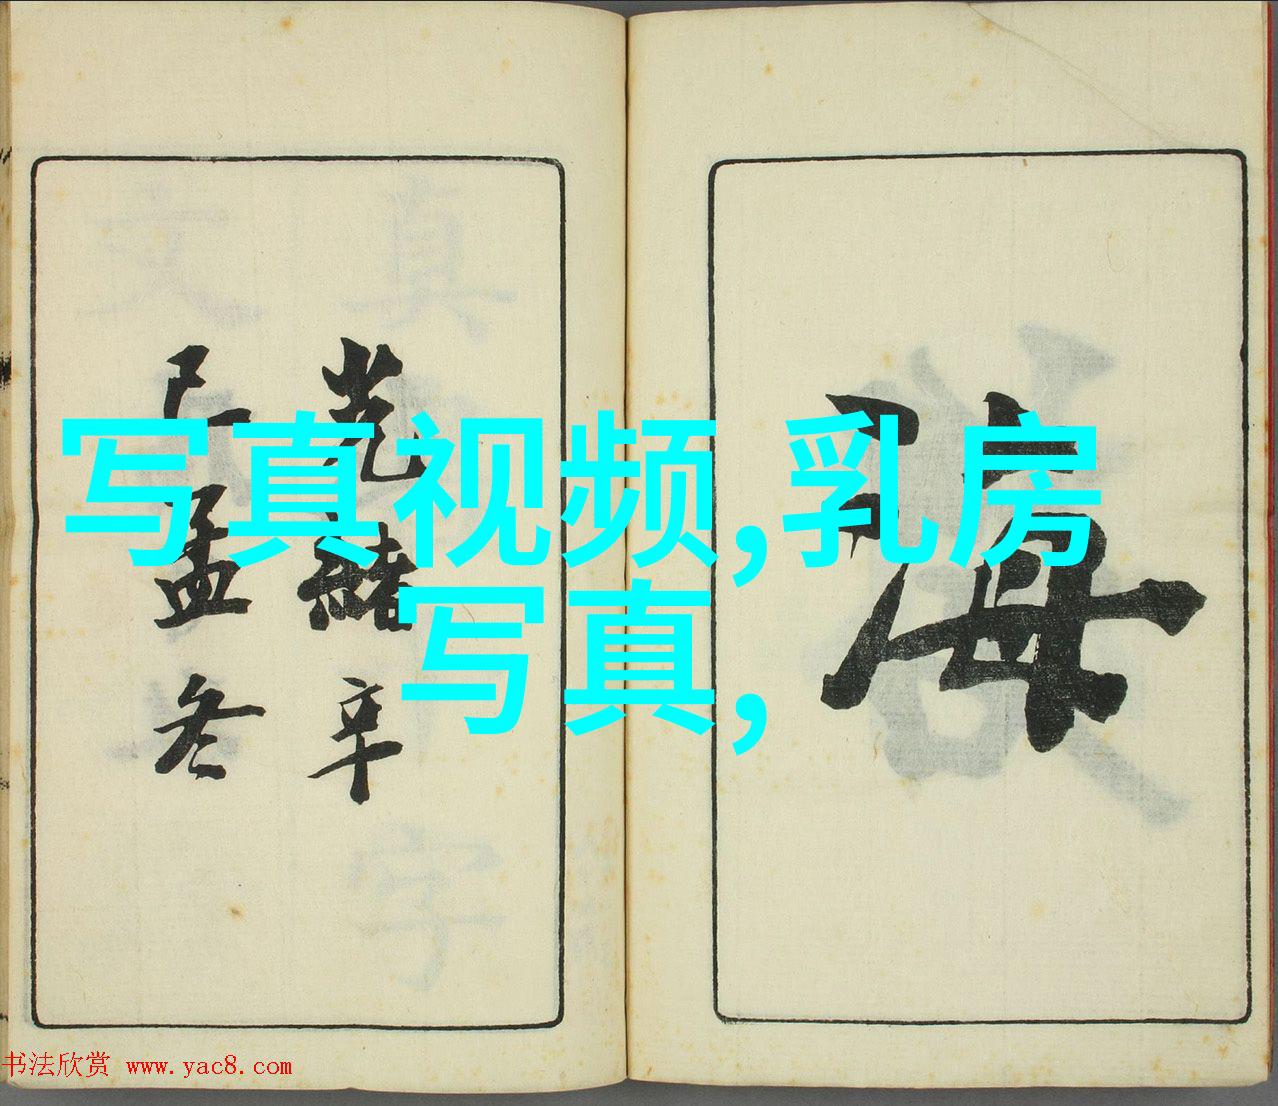 写真视频,乳房
写真,
誨
光緒辛
丑孟冬
书法欣赏 www.yac8.com